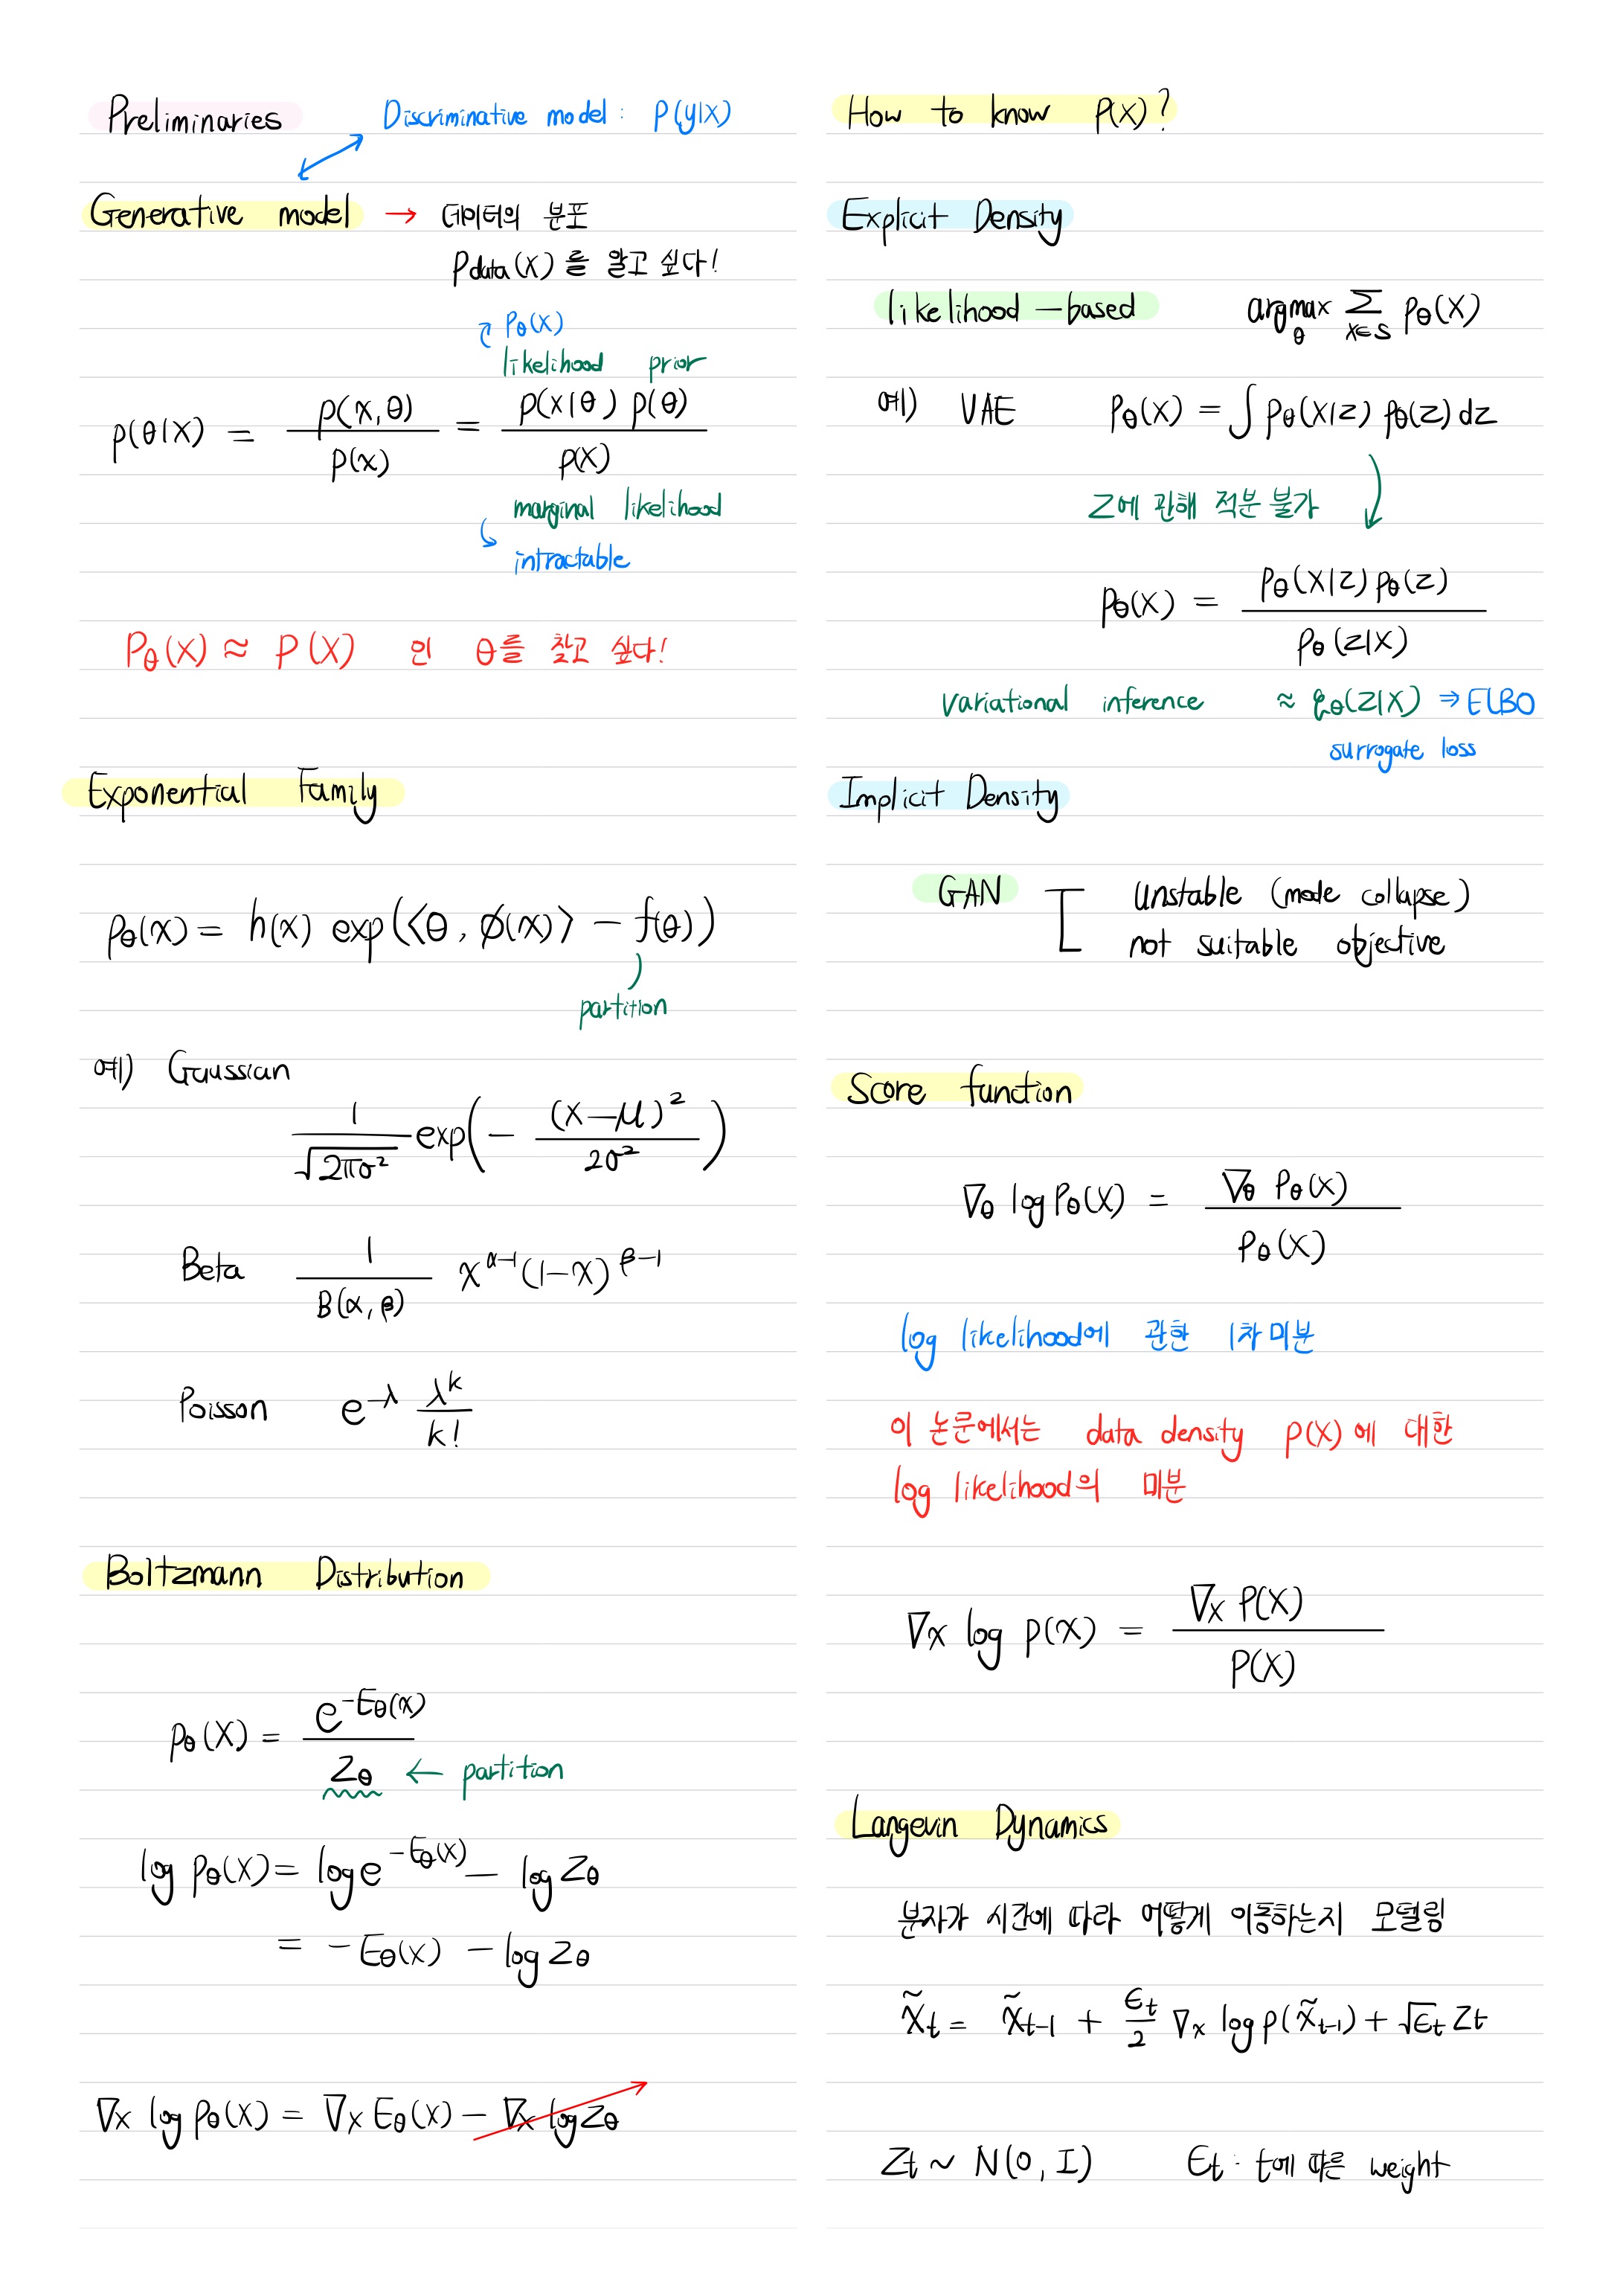 Preliminaries
Discriminative model : p(y|x)
Generative model → 데이터의 분포
Pdata(x)를 알고 싶다!
Pθ(x)
likelihood prior
p(θ|x) = p(x,θ) / p(x) = p(x|θ) p(θ) / p(x)
marginal likelihood
intractable
Pθ(x) ≈ P(x) 인 θ를 찾고 싶다!
Exponential Family
pθ(x) = h(x) exp(⟨θ, ϕ(x)⟩ − f(θ))
partition
예) Gaussian
1 / √2πσ² exp(− (x−μ)² / 2σ²)
Beta 1 / B(α, β) x^α−1 (1−x)^β−1
Poisson e^−λ λ^k / k!
Boltzmann Distribution
pθ(x) = e^−Eθ(x) / Zθ ← partition
log pθ(x) = log e^−Eθ(x) − log Zθ
= −Eθ(x) − log Zθ
∇x log pθ(x) = ∇x Eθ(x) − ∇x log Zθ
How to know p(x)?
Explicit Density
likelihood-based argmax θ Σ x∈S pθ(x)
예) VAE pθ(x) = ∫ pθ(x|z) pθ(z) dz
Z에 관해 적분 불가
pθ(x) = pθ(x|z) pθ(z) / pθ(z|x)
variational inference ≈ qθ(z|x) ⇒ ELBO
surrogate loss
Implicit Density
GAN [ unstable (mode collapse)
not suitable objective
Score function
∇θ log Pθ(x) = ∇θ Pθ(x) / Pθ(x)
log likelihood에 관한 1차 미분
이 논문에서는 data density p(x)에 대한
log likelihood의 미분
∇x log p(x) = ∇x P(x) / P(x)
Langevin Dynamics
분자가 시간에 따라 어떻게 이동하는지 모델링
x̃t = x̃t−1 + ϵt/2 ∇x log p(x̃t−1) + √ϵt Zt
Zt ~ N(0, I) ϵt : t에 따른 weight